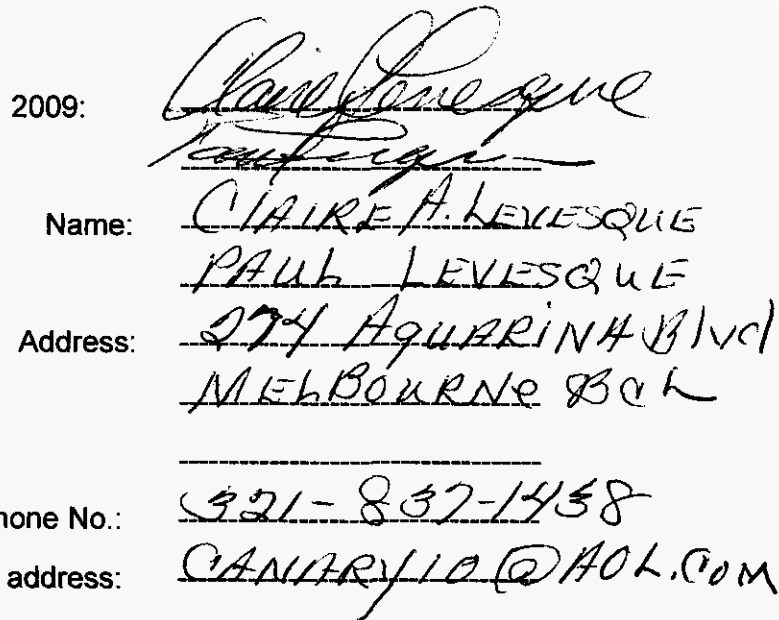 2009: Claire Levesque
Name: CLAIRE A. LEVESQUE
PAUL LEVESQUE
Address: 274 AQUARINA Blvd
MELBOURNE BCh
hone No.: 321-837-1438
address: CANARY10@AOL.COM